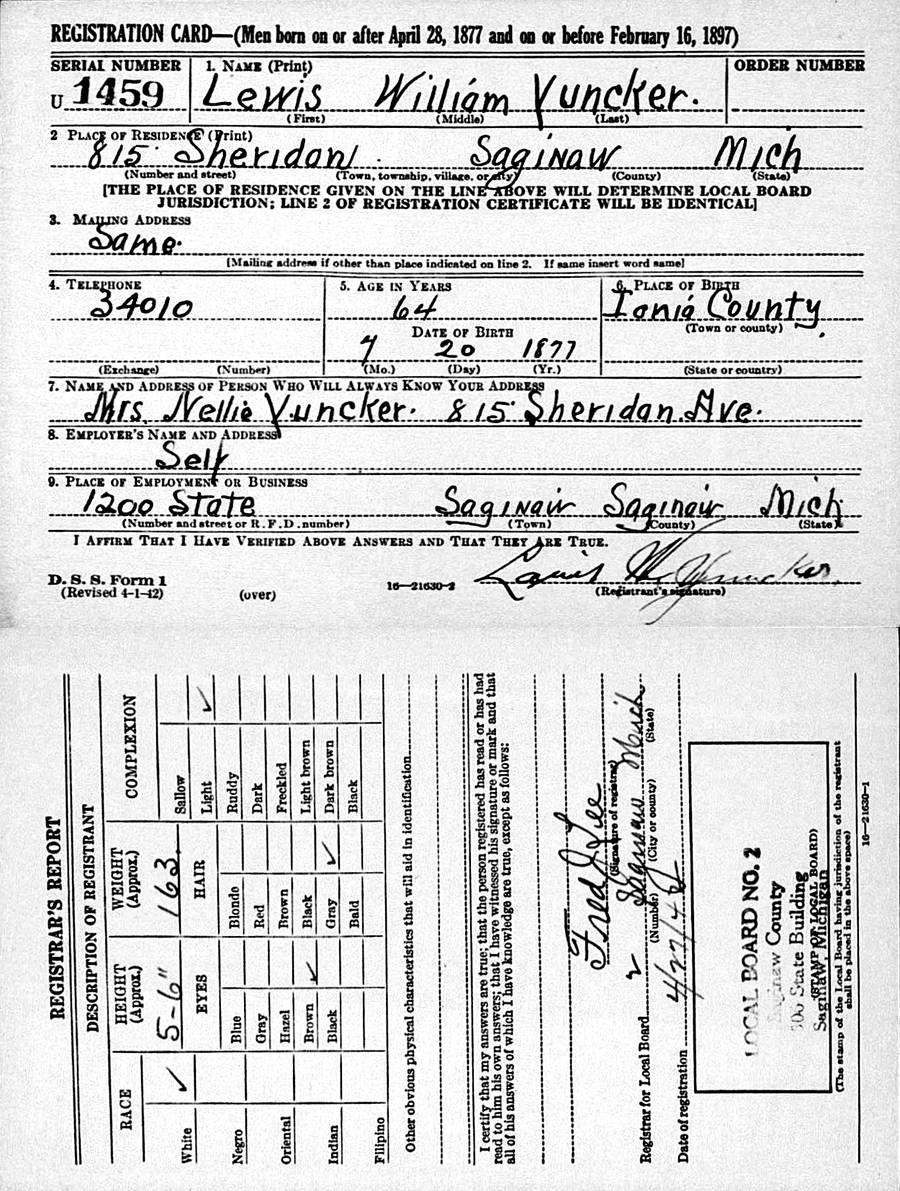 REGISTRATION CARD—(Men born on or after April 28, 1877 and on or before February 16, 1897)
SERIAL NUMBER 1. NAME (Print) ORDER NUMBER
U 1459 Lewis William Yuncker.
(First) (Middle) (Last)
2 PLACE OF RESIDENCE (Print)
815 Sheridan Saginaw Mich
(Number and street) (Town, township, village, or city) (County) (State)
[THE PLACE OF RESIDENCE GIVEN ON THE LINE ABOVE WILL DETERMINE LOCAL BOARD
JURISDICTION; LINE 2 OF REGISTRATION CERTIFICATE WILL BE IDENTICAL]
3. MAILING ADDRESS
Same.
[Mailing address if other than place indicated on line 2. If same insert word same]
4. TELEPHONE 5. AGE IN YEARS 6. PLACE OF BIRTH
34010 64 Ionia County
DATE OF BIRTH (Town or county)
7 20 1877
(Exchange) (Number) (Mo.) (Day) (Yr.) (State or country)
7. NAME AND ADDRESS OF PERSON WHO WILL ALWAYS KNOW YOUR ADDRESS
Mrs. Nellie Yuncker. 815 Sheridan Ave.
8. EMPLOYER'S NAME AND ADDRESS
Self
9. PLACE OF EMPLOYMENT OR BUSINESS
1200 State Saginaw Saginaw Mich
(Number and street or R. F. D. number) (Town) (County) (State)
I AFFIRM THAT I HAVE VERIFIED ABOVE ANSWERS AND THAT THEY ARE TRUE.
D. S. S. Form 1
(Revised 4-1-42) (over) 16—21630-2 Louis Wm Yuncker.
(Registrant's signature)
REGISTRAR'S REPORT
DESCRIPTION OF REGISTRANT
RACE HEIGHT (Approx.) WEIGHT (Approx.) COMPLEXION
White ✓ 5-6" 163. Sallow
EYES HAIR Light ✓
Negro Blue Blonde Ruddy
Gray Red Dark
Oriental Hazel Brown Freckled
Brown ✓ Black Light brown
Indian Black Gray ✓ Dark brown
Bald Black
Filipino
Other obvious physical characteristics that will aid in identification
I certify that my answers are true; that the person registered has read or has had
read to him his own answers; that I have witnessed his signature or mark and that
all of his answers of which I have knowledge are true, except as follows:
Fred J Lee
(Signature of registrar)
Registrar for Local Board 2 Saginaw Mich
(Number) (City or county) (State)
Date of registration 4/27/42
LOCAL BOARD NO. 2
Saginaw County
State Building
Saginaw, Michigan
(STAMP OF LOCAL BOARD)
(The stamp of the Local Board having jurisdiction of the registrant
shall be placed in the above space)
16—21630-1